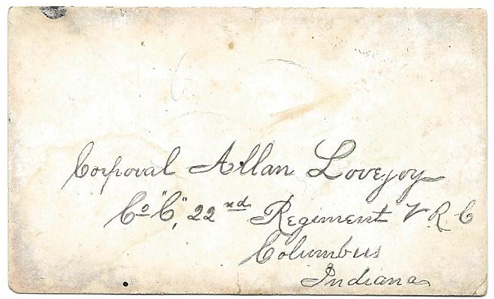 Corporal Allan Lovejoy
Co "C", 22nd Regiment V. R. C
Columbus
Indiana